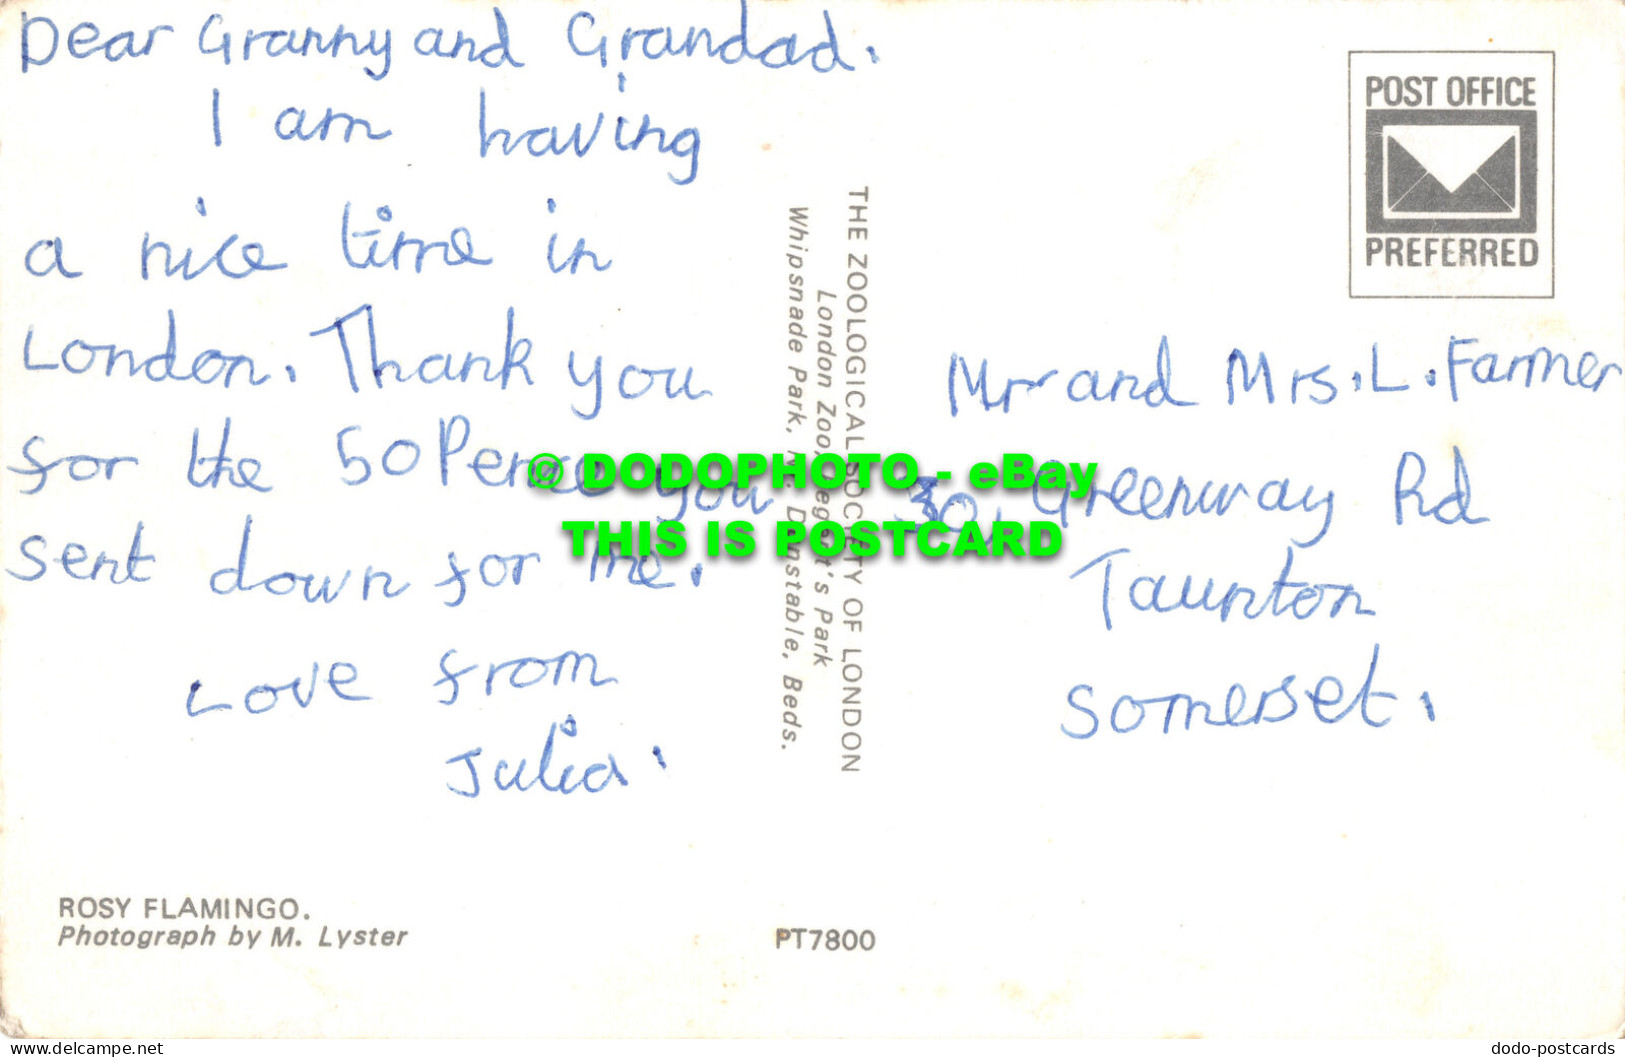 Dear Granny and Grandad.
I am having
a nice time in
London. Thank you
for the 50 Pence you
sent down for me.
Love from
Julia.
ROSY FLAMINGO.
Photograph by M. Lyster
PT7800
THE ZOOLOGICAL SOCIETY OF LONDON
London Zoo, Regent's Park
Whipsnade Park, Nr. Dunstable, Beds.
POST OFFICE
PREFERRED
Mr and Mrs. L. Farmer
30, Greenway Rd
Taunton
Somerset.
© DODOPHOTO - eBay
THIS IS POSTCARD
www.delcampe.net
dodo-postcards